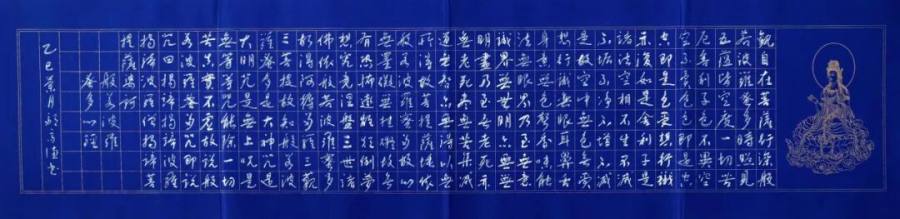 觀自在菩薩行深般
若波羅蜜多時照見
五蘊皆空度一切苦
厄舍利子色不異空
空不異色色即是空
空即是色受想行識
亦復如是舍利子是
諸法空相不生不滅
不垢不淨不增不減
是故空中無色無受
想行識無眼耳鼻舌
身意無色聲香味觸
法無眼界乃至無意
識界無無明亦無無
明盡乃至無老死亦
無老死盡無苦集滅
道無智亦無得以無
所得故菩提薩埵依
般若波羅蜜多故心
無罣礙無罣礙故無
有恐怖遠離顛倒夢
想究竟涅槃三世諸
佛依般若波羅蜜多
故得阿耨多羅三藐
三菩提故知般若波
羅蜜多是大神咒是
大明咒是無上咒是
無等等咒能除一切
苦真實不虛故說般
若波羅蜜多咒即說
咒曰揭諦揭諦波羅
揭諦波羅僧揭諦菩
提薩婆訶
般若波羅
蜜多心經
乙巳葉月